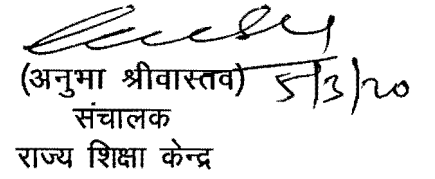 (अनुभा श्रीवास्तव) 5/3/20
संचालक
राज्य शिक्षा केन्द्र